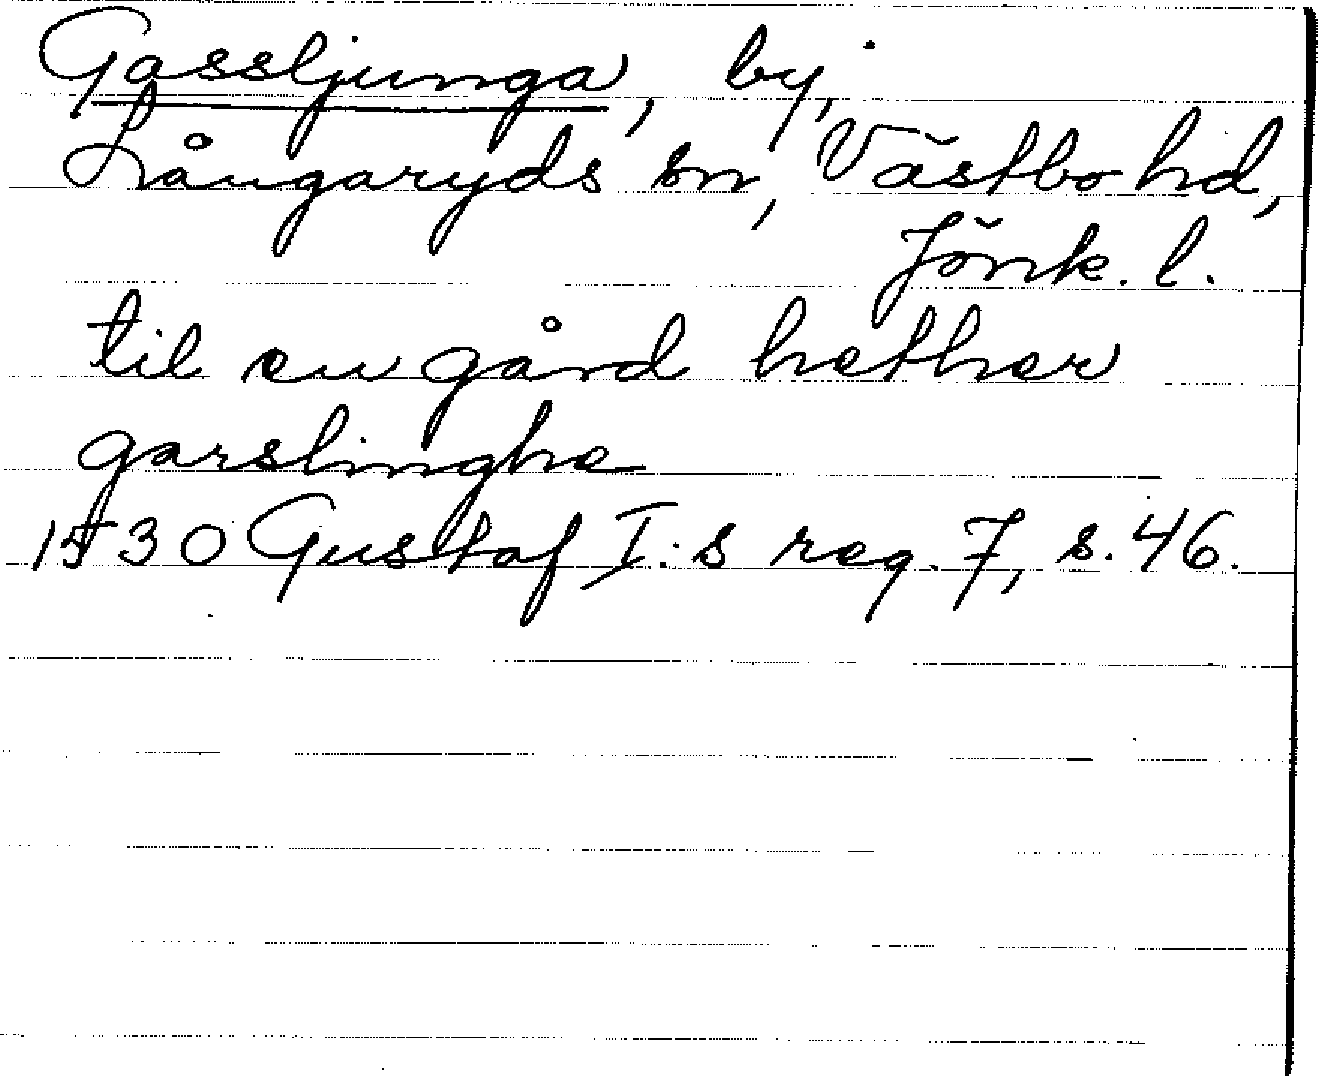 Gassljunga, by,
Långaryds sn, Västbo hd,
Jönk. l.
til en gård hether
garslinghe
1530 Gustaf I:s reg. 7, s. 46.